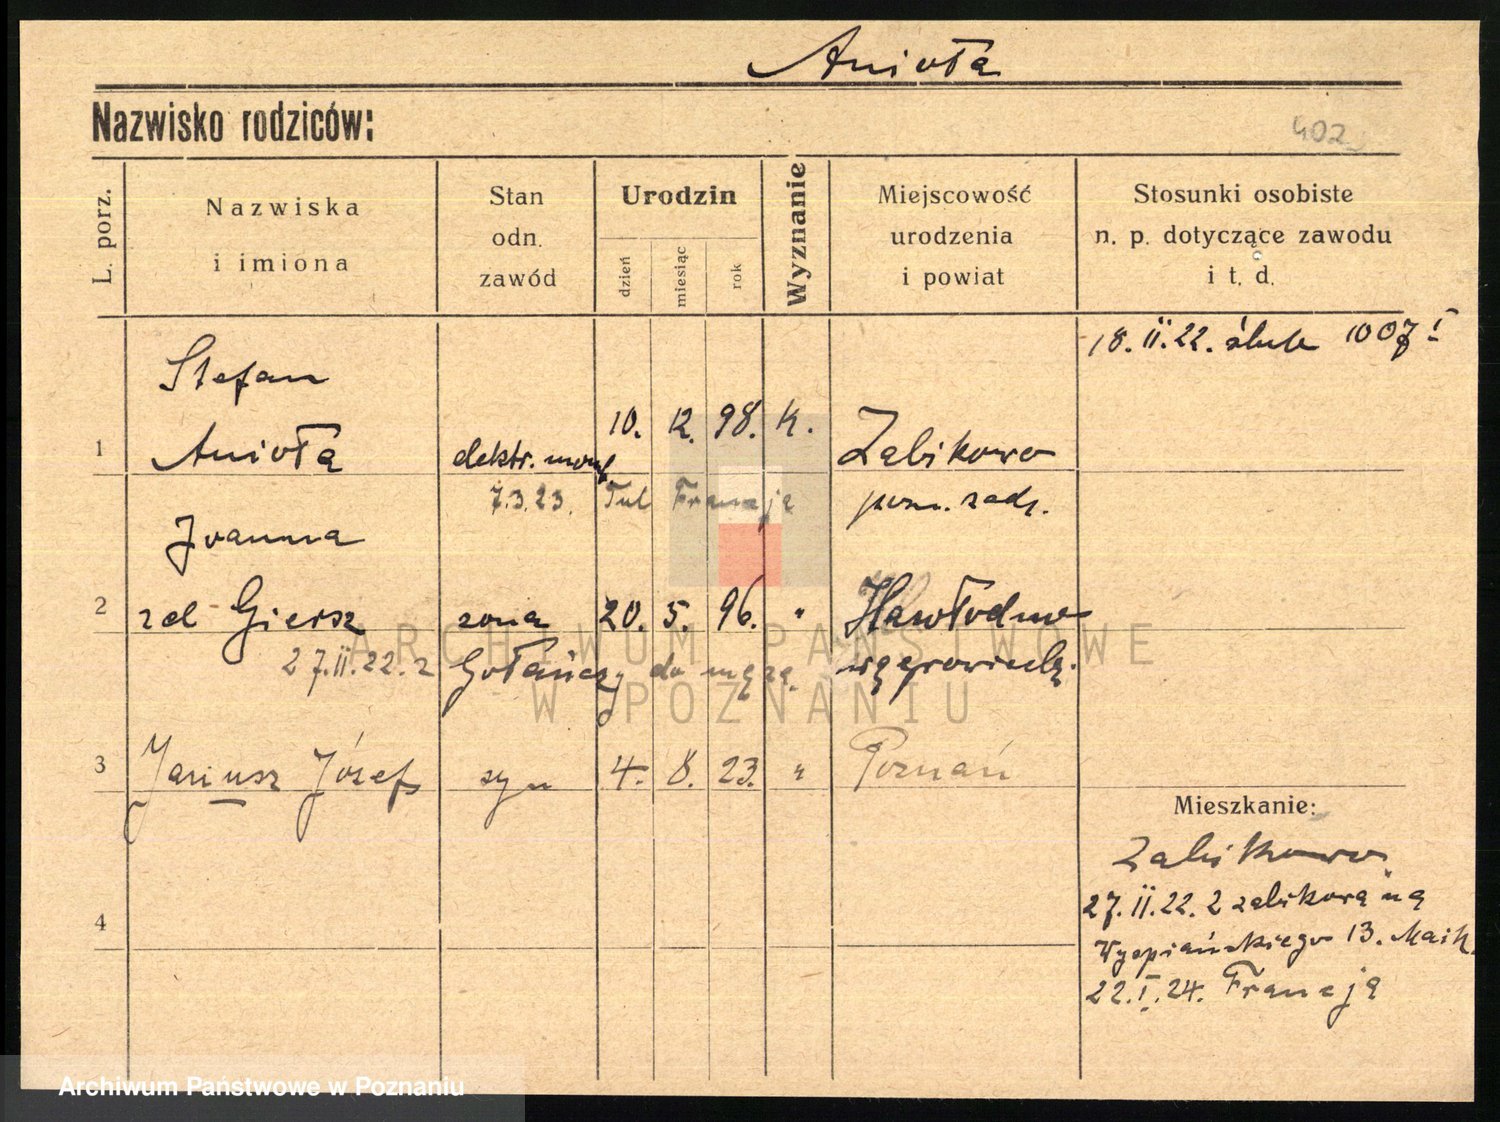 Anioła
Nazwisko rodziców:
402
L. porz.
Nazwiska
i imiona
Stan
odn.
zawód
Urodzin
dzień
miesiąc
rok
Wyznanie
Miejscowość
urodzenia
i powiat
Stosunki osobiste
n. p. dotyczące zawodu
i t. d.
18. II. 22. ślub 1007 I
Stefan
1 Anioła elektr. mont. 10. 12. 98. K. Żabikowo
7.3.23. Francja pozn. zach.
Joanna
2 zd Giersz żona 20. 5. 96. "
27.II.22. z Gołańczy do męża. wągrowiecki.
3 Jariusz Józef syn 4. 8. 23. " Poznań
Mieszkanie:
Żabikowo
4
27. II. 22. z Żabikowa na
Wyspiańskiego 13.
22. I. 24. Francja
ARCHIWUM PAŃSTWOWE
W POZNANIU
Archiwum Państwowe w Poznaniu